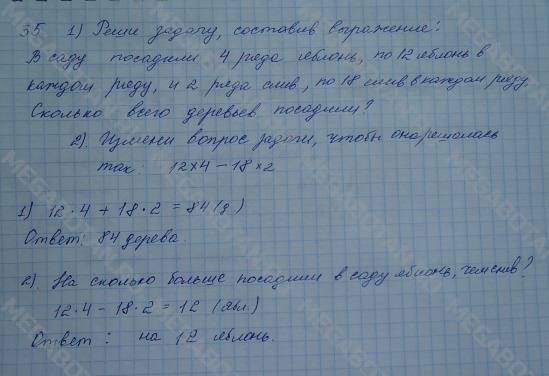 35 1) Реши задачу, составив выражение:
В саду посадили 4 ряда яблонь, по 12 яблонь в
каждом ряду, и 2 ряда слив, по 18 слив в каждом ряду.
Сколько всего деревьев посадили?
2). Измени вопрос задачи, чтобы она решалась
так: 12×4 – 18×2
1) 12·4 + 18·2 = 84 (д)
Ответ: 84 дерева.
2) На сколько больше посадили в саду яблонь, чем слив?
12·4 – 18·2 = 12 (ябл.)
Ответ: на 12 яблонь.
MEGABOTAN